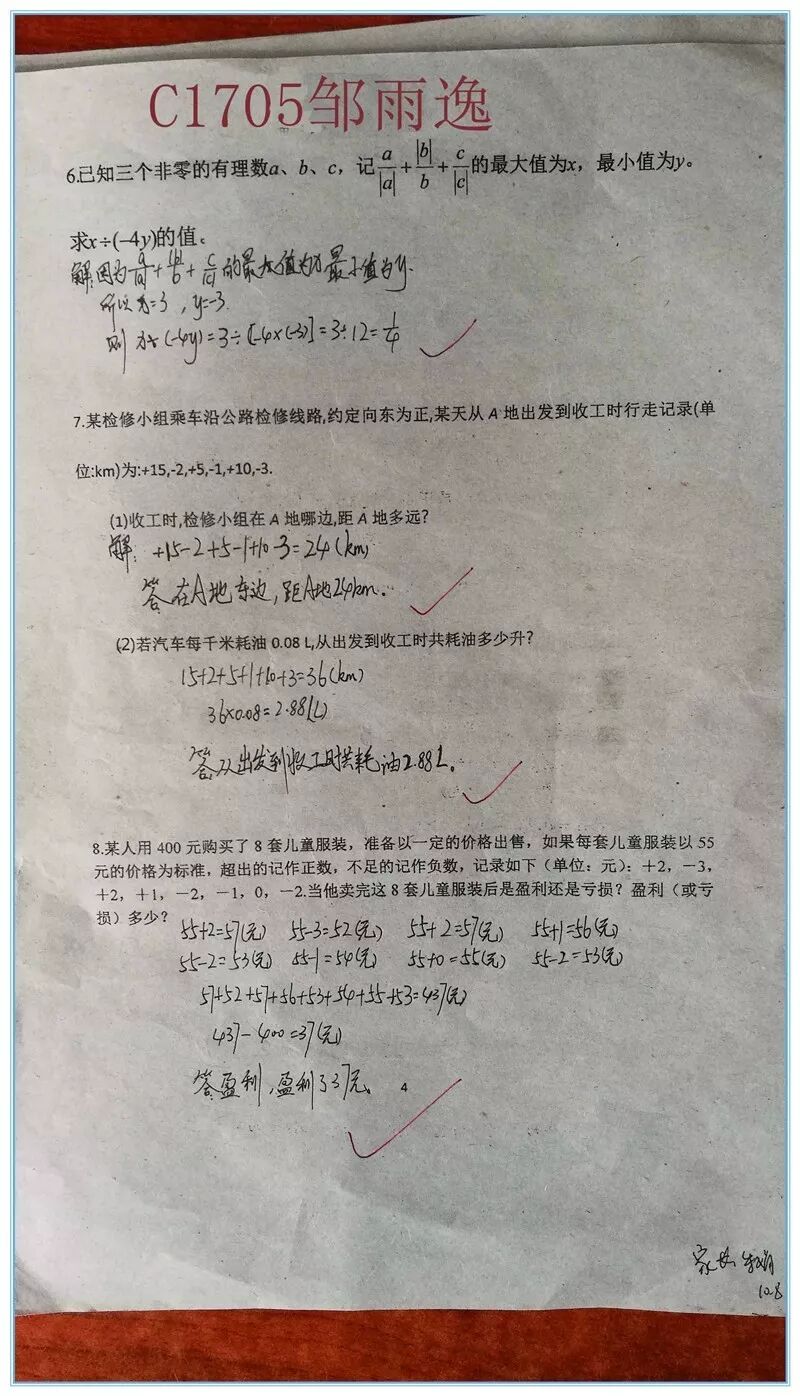 C1705邹雨逸
6.已知三个非零的有理数a、b、c，记a/|a|+|b|/b+c/|c|的最大值为x，最小值为y。
求x÷(−4y)的值。
解:因为a/|a|+|b|/b+c/|c|的最大值为x 最小值为y.
所以x=3，y=-3.
则 x÷(-4y)=3÷[-4×(-3)]=3÷12=1/4
7.某检修小组乘车沿公路检修线路,约定向东为正,某天从A地出发到收工时行走记录(单
位:km)为:+15,-2,+5,-1,+10,-3.
(1)收工时,检修小组在A地哪边,距A地多远?
解: +15-2+5-1+10-3=24(km)
答:在A地东边,距A地24km.
(2)若汽车每千米耗油0.08 L,从出发到收工时共耗油多少升?
15+2+5+1+10+3=36(km)
36×0.08=2.88(L)
答:从出发到收工时共耗油2.88L。
8.某人用 400 元购买了 8 套儿童服装，准备以一定的价格出售，如果每套儿童服装以 55
元的价格为标准，超出的记作正数，不足的记作负数，记录如下（单位：元）：+2，−3，
+2，+1，−2，−1，0，−2.当他卖完这8套儿童服装后是盈利还是亏损？盈利（或亏
损）多少？
55+2=57(元) 55-3=52(元) 55+2=57(元) 55+1=56(元)
55-2=53(元) 55-1=54(元) 55+0=55(元) 55-2=53(元)
57+52+57+56+53+54+55+53=437(元)
437-400=37(元)
答:盈利,盈利了37元。
4
家长
10.8